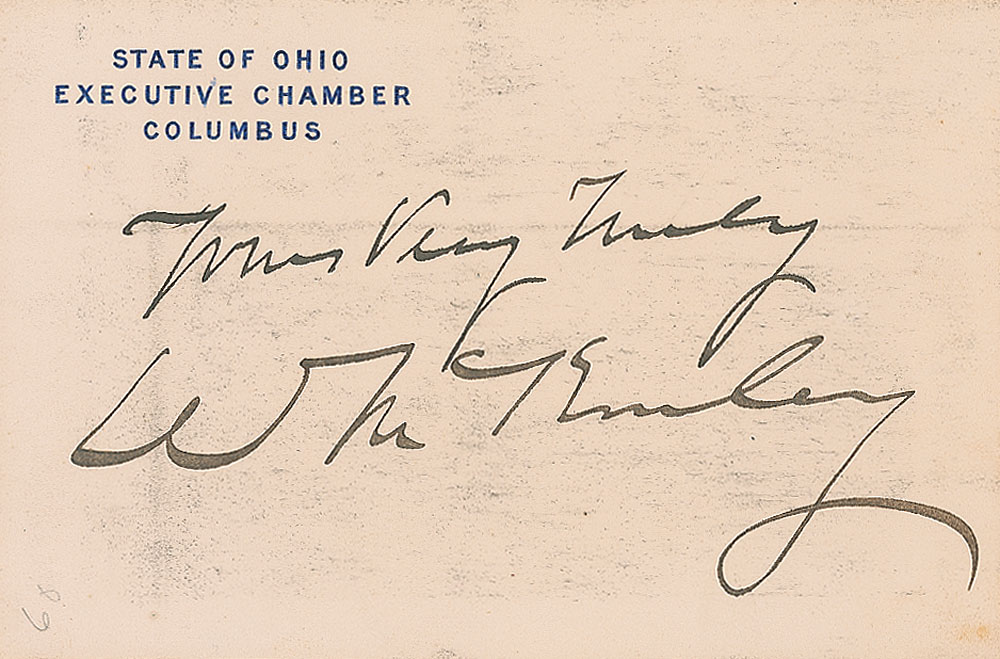 STATE OF OHIO
EXECUTIVE CHAMBER
COLUMBUS
Yours Very Truly
W McKinley
68